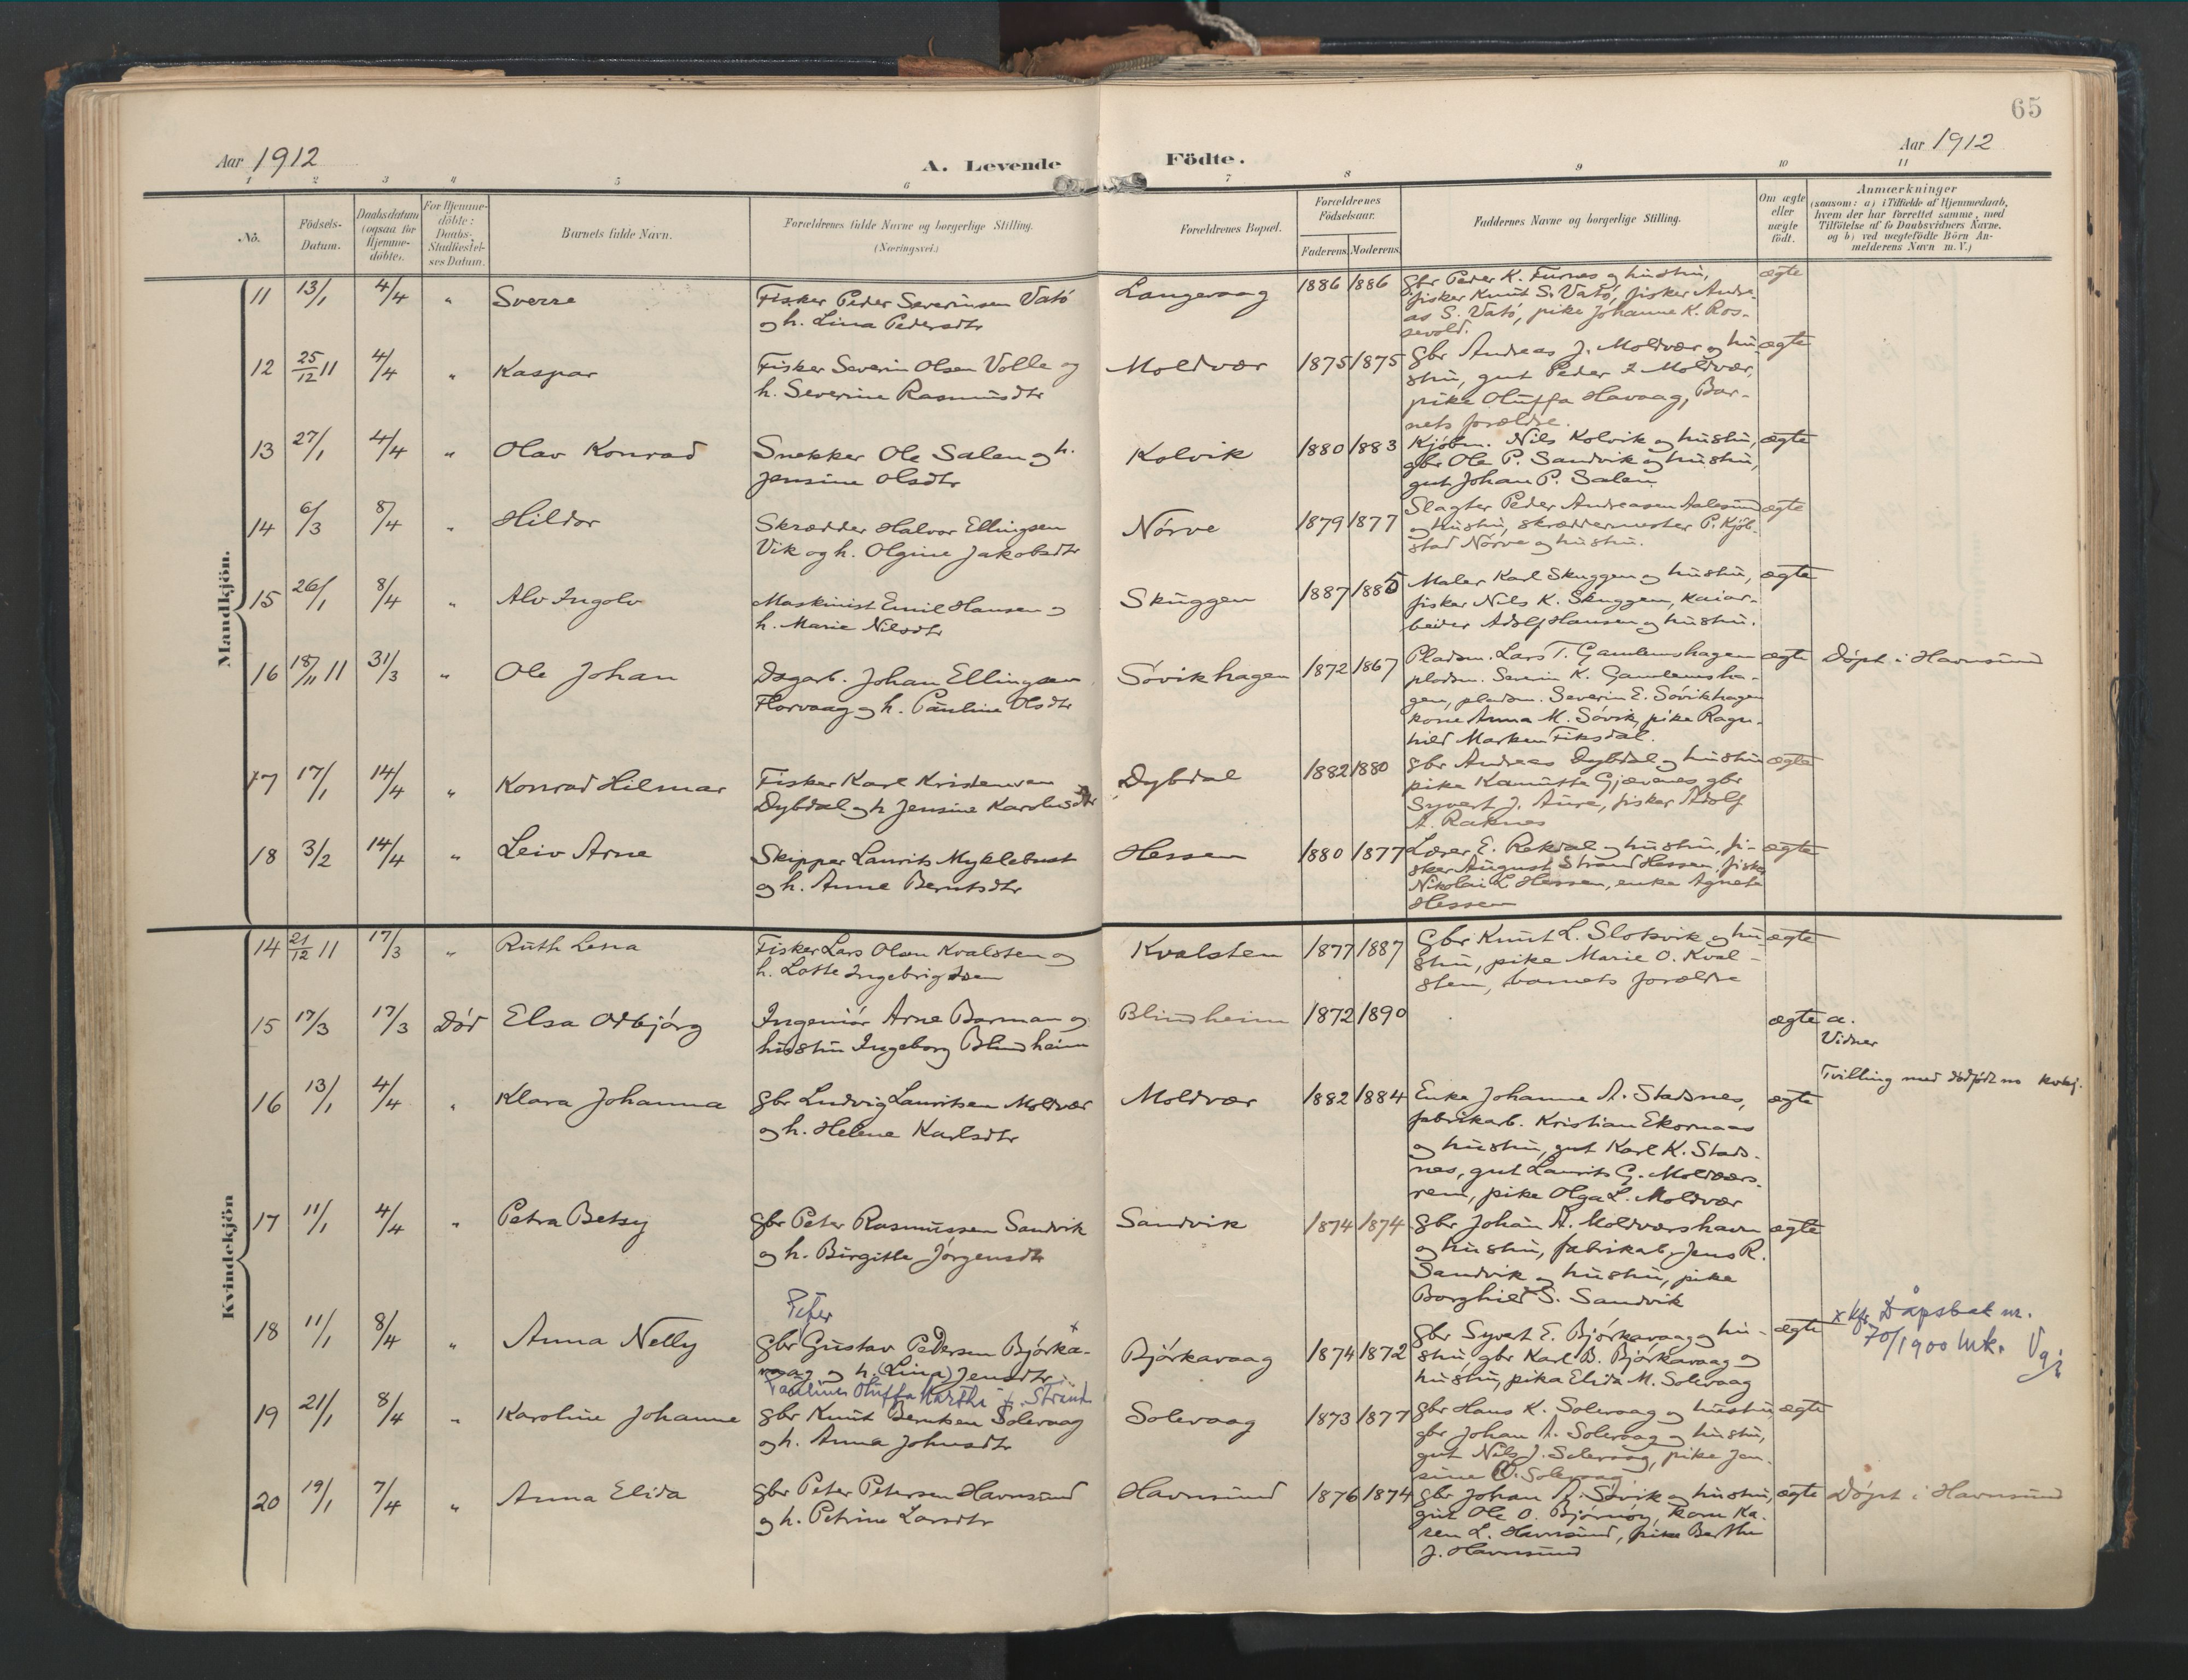 65
Aar 1912
A. Levende Födte.
Aar 1912
1 2 3 4 5 6 7 8 9 10 11
No.
Födsels-
Datum.
Daabsdatum
(ogsaa for
Hjemme-
döbte).
For Hjemme-
döbte:
Daabs-
Stadfæstel-
ses Datum.
Barnets fulde Navn.
Forældrenes fulde Navne og borgerlige Stilling.
(Næringsvei.)
Forældrenes Bopæl.
Forældrenes
Födselsaar.
Faderens. Moderens.
Faddernes Navne og borgerlige Stilling.
Om ægte
eller
uægte
födt.
Anmærkninger
(saasom: a) i Tilfælde af Hjemmedaab,
hvem der har forrettet samme, med
Tilföielse af to Daabsvidners Navne,
og b) ved uægtefödte Börn An-
melderens Navn m. V.)
Mandkjön.
11 13/1 4/4 " Sverre
Fisker Peder Severinsen Vatö
og h. Lina Pedersdtr
Langevaag 1886 1886
gbr Peder K. Furnes og hustru,
fisker Knut S. Vatö, fisker Andre-
as S. Vatö, pike Johanne K. Ros-
sevold.
ægte
12 25/12 11 4/4 " Kaspar
Fisker Severin Olsen Volle og
h. Severine Rasmusdtr
Moldvær 1875 1875
gbr Andreas J. Moldvær og hu-
stru, gut Peder I Moldvær,
pike Oluffa Havaag, Bar-
nets forældre.
ægte
13 27/1 4/4 " Olav Konrad
Snekker Ole Salen og h.
Jensine Olsdtr
Kolvik 1880 1883
Kjöbm. Nils Kolvik og hustru,
gbr Ole P. Sandvik og hustru,
gut Johan P. Salen
ægte
14 6/3 8/4 " Hildor
Skrædder Halvor Ellingsen
Vik og h. Olgine Jakobsdtr
Nörve 1879 1877
Slagter Peder Andreasen Aalesund
og hustru, skræddermester P. Kjöb-
stad Nörve og hustru.
ægte
15 26/1 8/4 " Alv Ingolv
Maskinist Emil Hansen og
h. Marie Nilsdtr
Skuggen 1887 1885
Maler Karl Skuggen og hustru,
fisker Nils K. Skuggen, kaiar-
beider Adolf Hansen og hustru.
ægte
16 18/11 11 31/3 " Ole Johan
Dagarb. Johan Ellingsen
Florvaag og h. Pauline Olsdtr
Sövikhagen 1872 1867
Pladsm. Lars T. Gamlemshagen
pladsm. Severin K. Gamlemsha-
gen, pladsm. Severin E. Sövikhagen
kone Anna M. Sövik, pike Ragn-
hild Marken Fiksdal.
ægte Döpt i Havnsund
17 17/1 14/4 " Konrad Hilmar
Fisker Karl Kristensen
Dybdal og h Jensine Karolusdtr
Dybdal 1882 1880
gbr Andreas Dybdal og hustru
pike Kanutte Gjævenes gbr
Syvert J. Aure, fisker Adolf
A. Raknes
ægte
18 3/2 14/4 " Leiv Arne
Skipper Laurits Myklebust
og h. Anne Berntsdtr
Hessen 1880 1877
Lærer E. Rekdal og hustru, fi-
sker August Strand Hessen, fisker
Nikolai L Hessen, enke Agnete
Hessen
ægte
Kvindekjön
14 21/12 11 17/3 " Ruth Lena
Fisker Lars Olsen Kvalsten og
h. Lotte Ingebrigtsen
Kvalsten 1877 1887
Gbr Knut L. Slotsvik og hu-
stru, pike Marie O. Kval-
sten, barnets forældre
ægte
15 17/3 17/3 Död Elsa Odbjörg
Ingeniör Arne Barman og
hustru Ingeborg Blindheim
Blindheim 1872 1890
ægte a.
Vidner
16 13/1 4/4 " Klara Johanna
gbr Ludvig Lauritsen Moldvær
og h. Helene Karlsdtr
Moldvær 1882 1884
Enke Johanne A. Stadsnes,
fabrikarb. Kristian Ekornaas
og hustru, gut Karl K. Stads-
nes, gut Laurits G. Moldværs-
rem, pike Olga L. Moldvær
ægte Tvilling med dödfödt no kvkj.
17 11/1 4/4 " Petra Betsy
gbr Peter Rasmussen Sandvik
og h. Birgitte Jörgensdtr
Sandvik 1874 1874
gbr Johan A. Moldværshavn
og hustru, fabrikarb. Jens R.
Sandvik og hustru, pike
Borghild S. Sandvik
ægte
18 11/1 8/4 " Anna Nelly
Peter
gbr Gustav Pedersen Björka-x
vaag og h. (Lina) Jensdtr
Pauline Oluffa Martha f. Strand
Björkavaag 1874 1872
gbr Syvert E. Björkavaag og hu-
stru, gbr Karl B. Björkavaag og
hustru, pike Elida M. Solevaag
ægte
x kfr. Dåpsbok nr.
70/1900 mk. Vgj
19 21/1 8/4 " Karoline Johanne
gbr Knut Berntsen Solevaag
og h. Anna Johnsdtr
Solevaag 1873 1877
gbr Hans K. Solevaag og hustru,
gbr Johan A. Solevaag og hustru,
gut Nils J. Solevaag, pike Jen-
sine O. Solevaag
ægte
20 19/1 7/4 " Anna Elida
gbr Peter Petersen Havnsund
og h. Petrine Larsdtr
Havnsund 1876 1874
gbr Johan A. Sövik og hustru,
gut Ole O. Björnöy, kone Ka-
ren L. Havnsund, pike Berthe
J. Havnsund
ægte Döpt i Havnsund